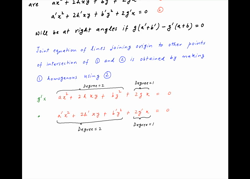 are ax² + 2hxy + by² + 2gx = 0
a'x² + 2h'xy + b'y² + 2g'x = 0 ②
Will be at right angles if g(a'+b') - g'(a+b) = 0
Joint equation of lines joining origin to other points
of intersection of ① and ② is obtained by making
① homogenous using ②
Degree=2 Degree=1
g'x ax² + 2hxy + by² + 2gx = 0
a'x² + 2h'xy + b'y² + 2g'x = 0
Degree=2 Degree=1